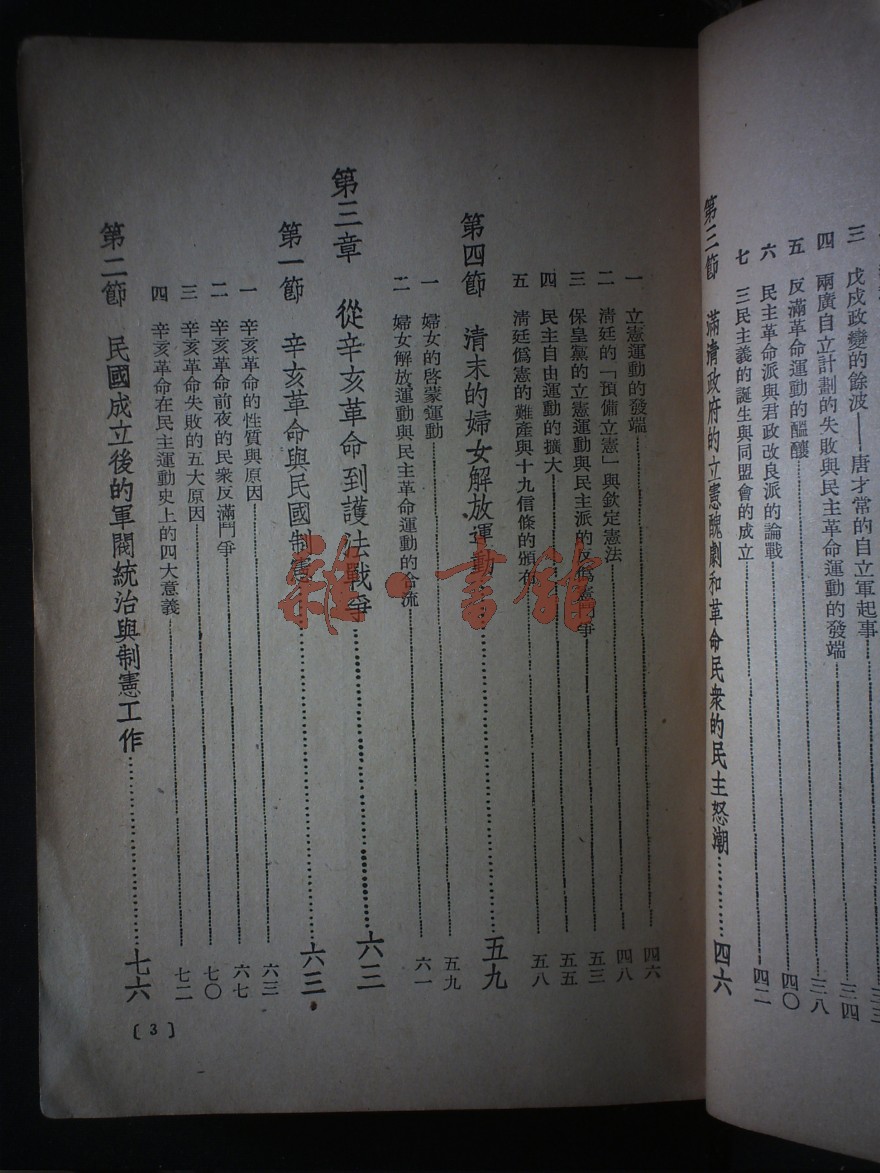 三 戊戌政變的餘波——唐才常的自立軍起事……三三
四 兩廣自立計劃的失敗與民主革命運動的發端……三四
五 反滿革命運動的醞釀……三八
六 民主革命派與君政改良派的論戰……四〇
七 三民主義的誕生與同盟會的成立……四二
第三節 滿清政府的立憲醜劇和革命民衆的民主怒潮……四六
一 立憲運動的發端……四六
二 清廷的「預備立憲」與欽定憲法……四八
三 保皇黨的立憲運動與民主派的反僞憲鬥爭……五三
四 民主自由運動的擴大……五五
五 清廷僞憲的難產與十九信條的頒布……五八
第四節 清末的婦女解放運動……五九
一 婦女的啓蒙運動……五九
二 婦女解放運動與民主革命運動的合流……六一
第三章 從辛亥革命到護法戰爭……六三
第一節 辛亥革命與民國制憲……六三
一 辛亥革命的性質與原因……六三
二 辛亥革命前夜的民衆反滿鬥爭……六七
三 辛亥革命失敗的五大原因……七〇
四 辛亥革命在民主運動史上的四大意義……七二
第二節 民國成立後的軍閥統治與制憲工作……七六
〔3〕
雜·書館